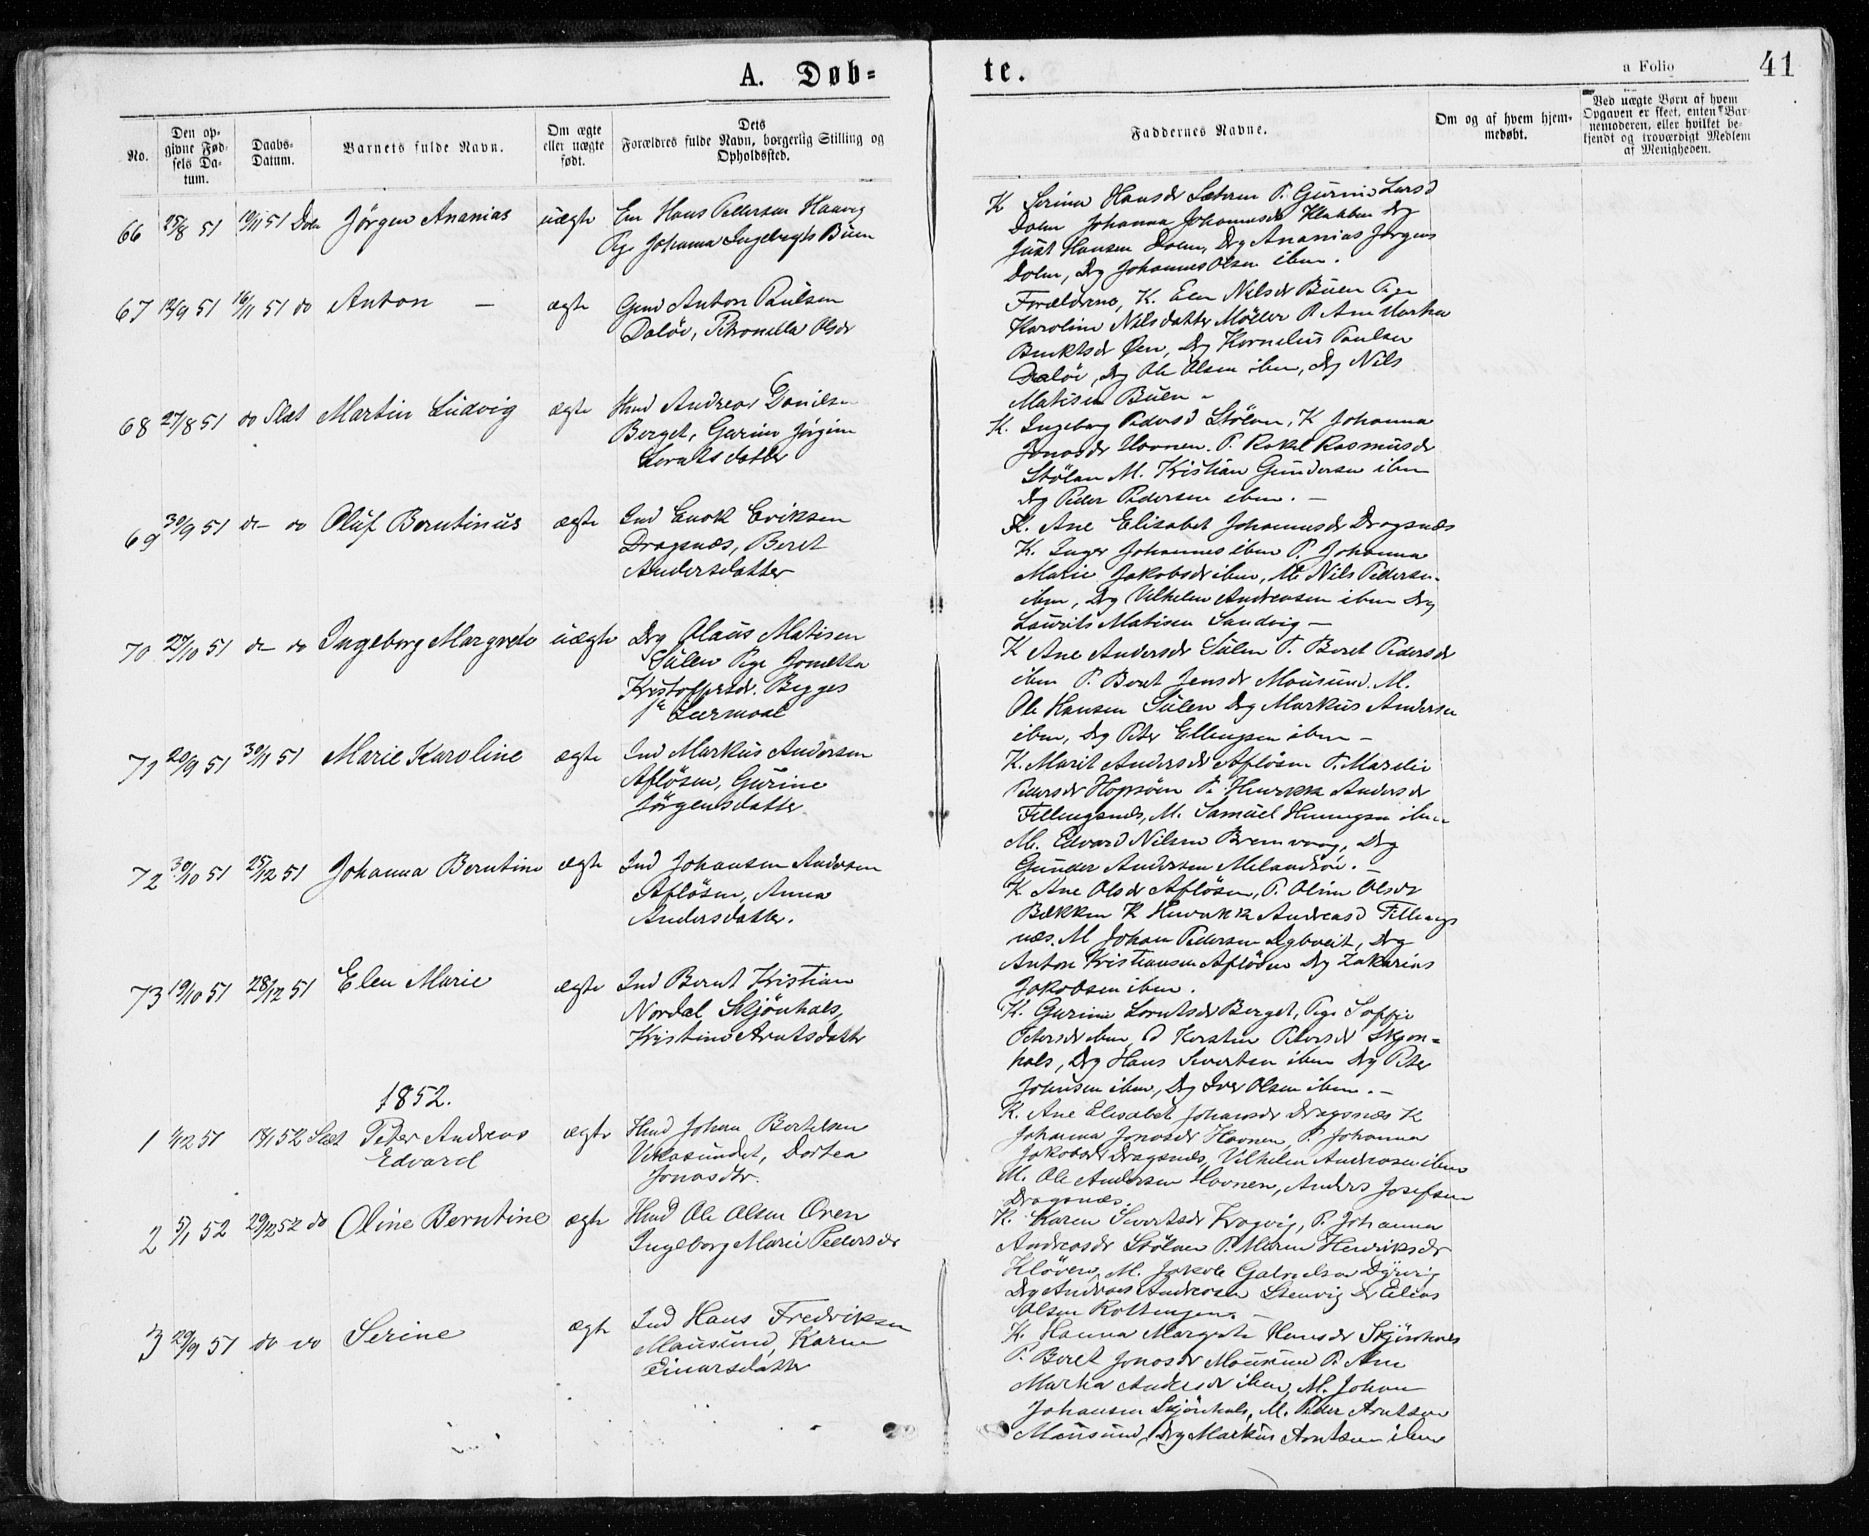 A. Døb= te. a Folio 41
No.
Den opgivne Fødsels Datum.
Daabs-Datum.
Barnets fulde Navn.
Om ægte eller uægte født.
Dets Forældres fulde Navn, borgerlig Stilling og Opholdssted.
Faddernes Navne.
Om og af hvem hjemmedøbt.
Ved uægte Børn af hvem Opgaven er skeet, enten Barnemoderen, eller hvilket bekjendt og troværdigt Medlem af Menigheden.
66 25/8 51 Jørgen Ananias uægte
Em Hans Pettersen Haavig
Pige Johanna Ingebrigts Buen
K Serina Hansdr P. Gurine Larsd
Dolm Johanna Johannesdr Klakken Drg
Just Hansen Dolm, Drg Ananias Jørgens
Dolm, Drg Johannes Olsen ibm.
67 12/9 51 16/11 51 do Anton – ægte
Gmd Anton Paulsen
Daløi, Petronella Olsdr
Forældrene, K. Elen Nilsdr Buen Pige
Karoline Nilsdatter Møller P. Ane Martha
Øen, Drg Kornelius Paulsen
Daløi, Drg Ole Olsen ibm, Drg Nils
Matisen Buen –
68 27/8 51 do Slet Martin Ludvig ægte
Hmd Andreas Danielsen
Berget, Gurine Jørgine
Lorntsdatter
K. Ingeborg Pedersd Stølan, K Johanna
Jonasdr Hovnen. P. Rakel Rasmusdr
Stølan M. Kristian Gundersen ibm
Drg Peder Pedersen ibm. –
69 30/9 51 do do Oluf Berntinus ægte
Ind Enok Eriksen
Dragsnæs, Beret
Andersdatter
K. Ane Elisabet Johannesdr Dragsnæs
K. Inger Johannes ibm P. Johanna
Marie Jakobsdr ibm, M. Nils Pedersen
ibm, Drg Vilhelm Andreasen ibm Drg
Laurits Matisen Sandvig –
70 27/10 51 do do Ingeborg Margrete uægte
Drg Olaus Matisen
Sulen Pige Jonetta
Kristoffersdr. Begges
1ste Leermaal
K Ane Andersdr Sulen P. Beret Pedersdr
ibm P. Beret Jensdr Mausund. M.
Ole Hansen Sulen Drg Markus Andersen
ibm, Drg Peter Ellingsen ibm –
71 20/9 51 30/11 51 Marie Karoline ægte
Ind Markus Andersen
Afløsen, Gurine
Jørgensdatter
K. Marit Andersdr Afløsen P. Marelie
Pedersdr Hopsøen P. Henrikke Andersdr
Fillingsnæs, M. Samuel Henningsen ibm
M. Edvard Nilsen Bremvaag, Drg
Gunder Andersen Melandsøe. –
72 30/10 51 25/12 51 Johanna Berntine ægte
Ind Johansen Andersen
Afløsen, Anna
Andersdatter.
K Ane Olsdr Afløsen, P. Oline Olsdr
Bekken K Henrikke Andreasd Fillings
næs. M Johan Pedersen Drg
Anton Kristiansen Afløsen Drg Zakarias
Jakobsen ibm.
73 19/10 51 28/12 51 Elen Marie ægte
Ind Bernt Kristian
Nordal Skjønhals,
Kristine Arntsdatter
K. Gurine Lorntsdr Berget, Pige Soffie
Petersdr ibm, Kerstin Petersdr Skjøn=
hals, Drg Hans Sivertsen ibm Drg Peter
Johnsen ibm, Drg Iver Olsen ibm. –
1852.
1 1/12 51 18/1 52 Slet Peter Andreas
Edvard ægte
Hmd Johan Bertelsen
Vikasundet, Dortea
Jonasdtr.
K. Ane Elisabet Johansdr Dragsnæs K
Johanna Jonasdr Hovnen, P. Johanna
Jakobsdr Dragsnæs, Vilhelm Andreasen ibm
M. Ole Andersen Hovnen, Anders Josefsen
Dragsnæs.
2 5/1 52 29/2 52 do Oline Berntine ægte
Hmd Ole Olsen Oren
Ingeborg Marie Pedersdr
K. Karen Sivertsdr Krogvig, P. Johanna
Andreasdr Stølan P. Maren Henriksdr
Kløven, M. Jakob Gabrielsen Dyrvig
Drg Andreas Andreasen Stenvig Dr Elias
Olsen Rottingen. –
3 29/9 51 do do Serine ægte
Ind Hans Fredriksen
Mausund, Karen
Einarsdatter
K. Hanna Margrete Hansdr Skjønhals
P. Beret Jonasdr Mausund P. Ane
Martha Andersdr ibm, M. Johan
Johansen Skjønhals, M. Peder Arntsen
Mausund, Drg Markus Arntsen ibm